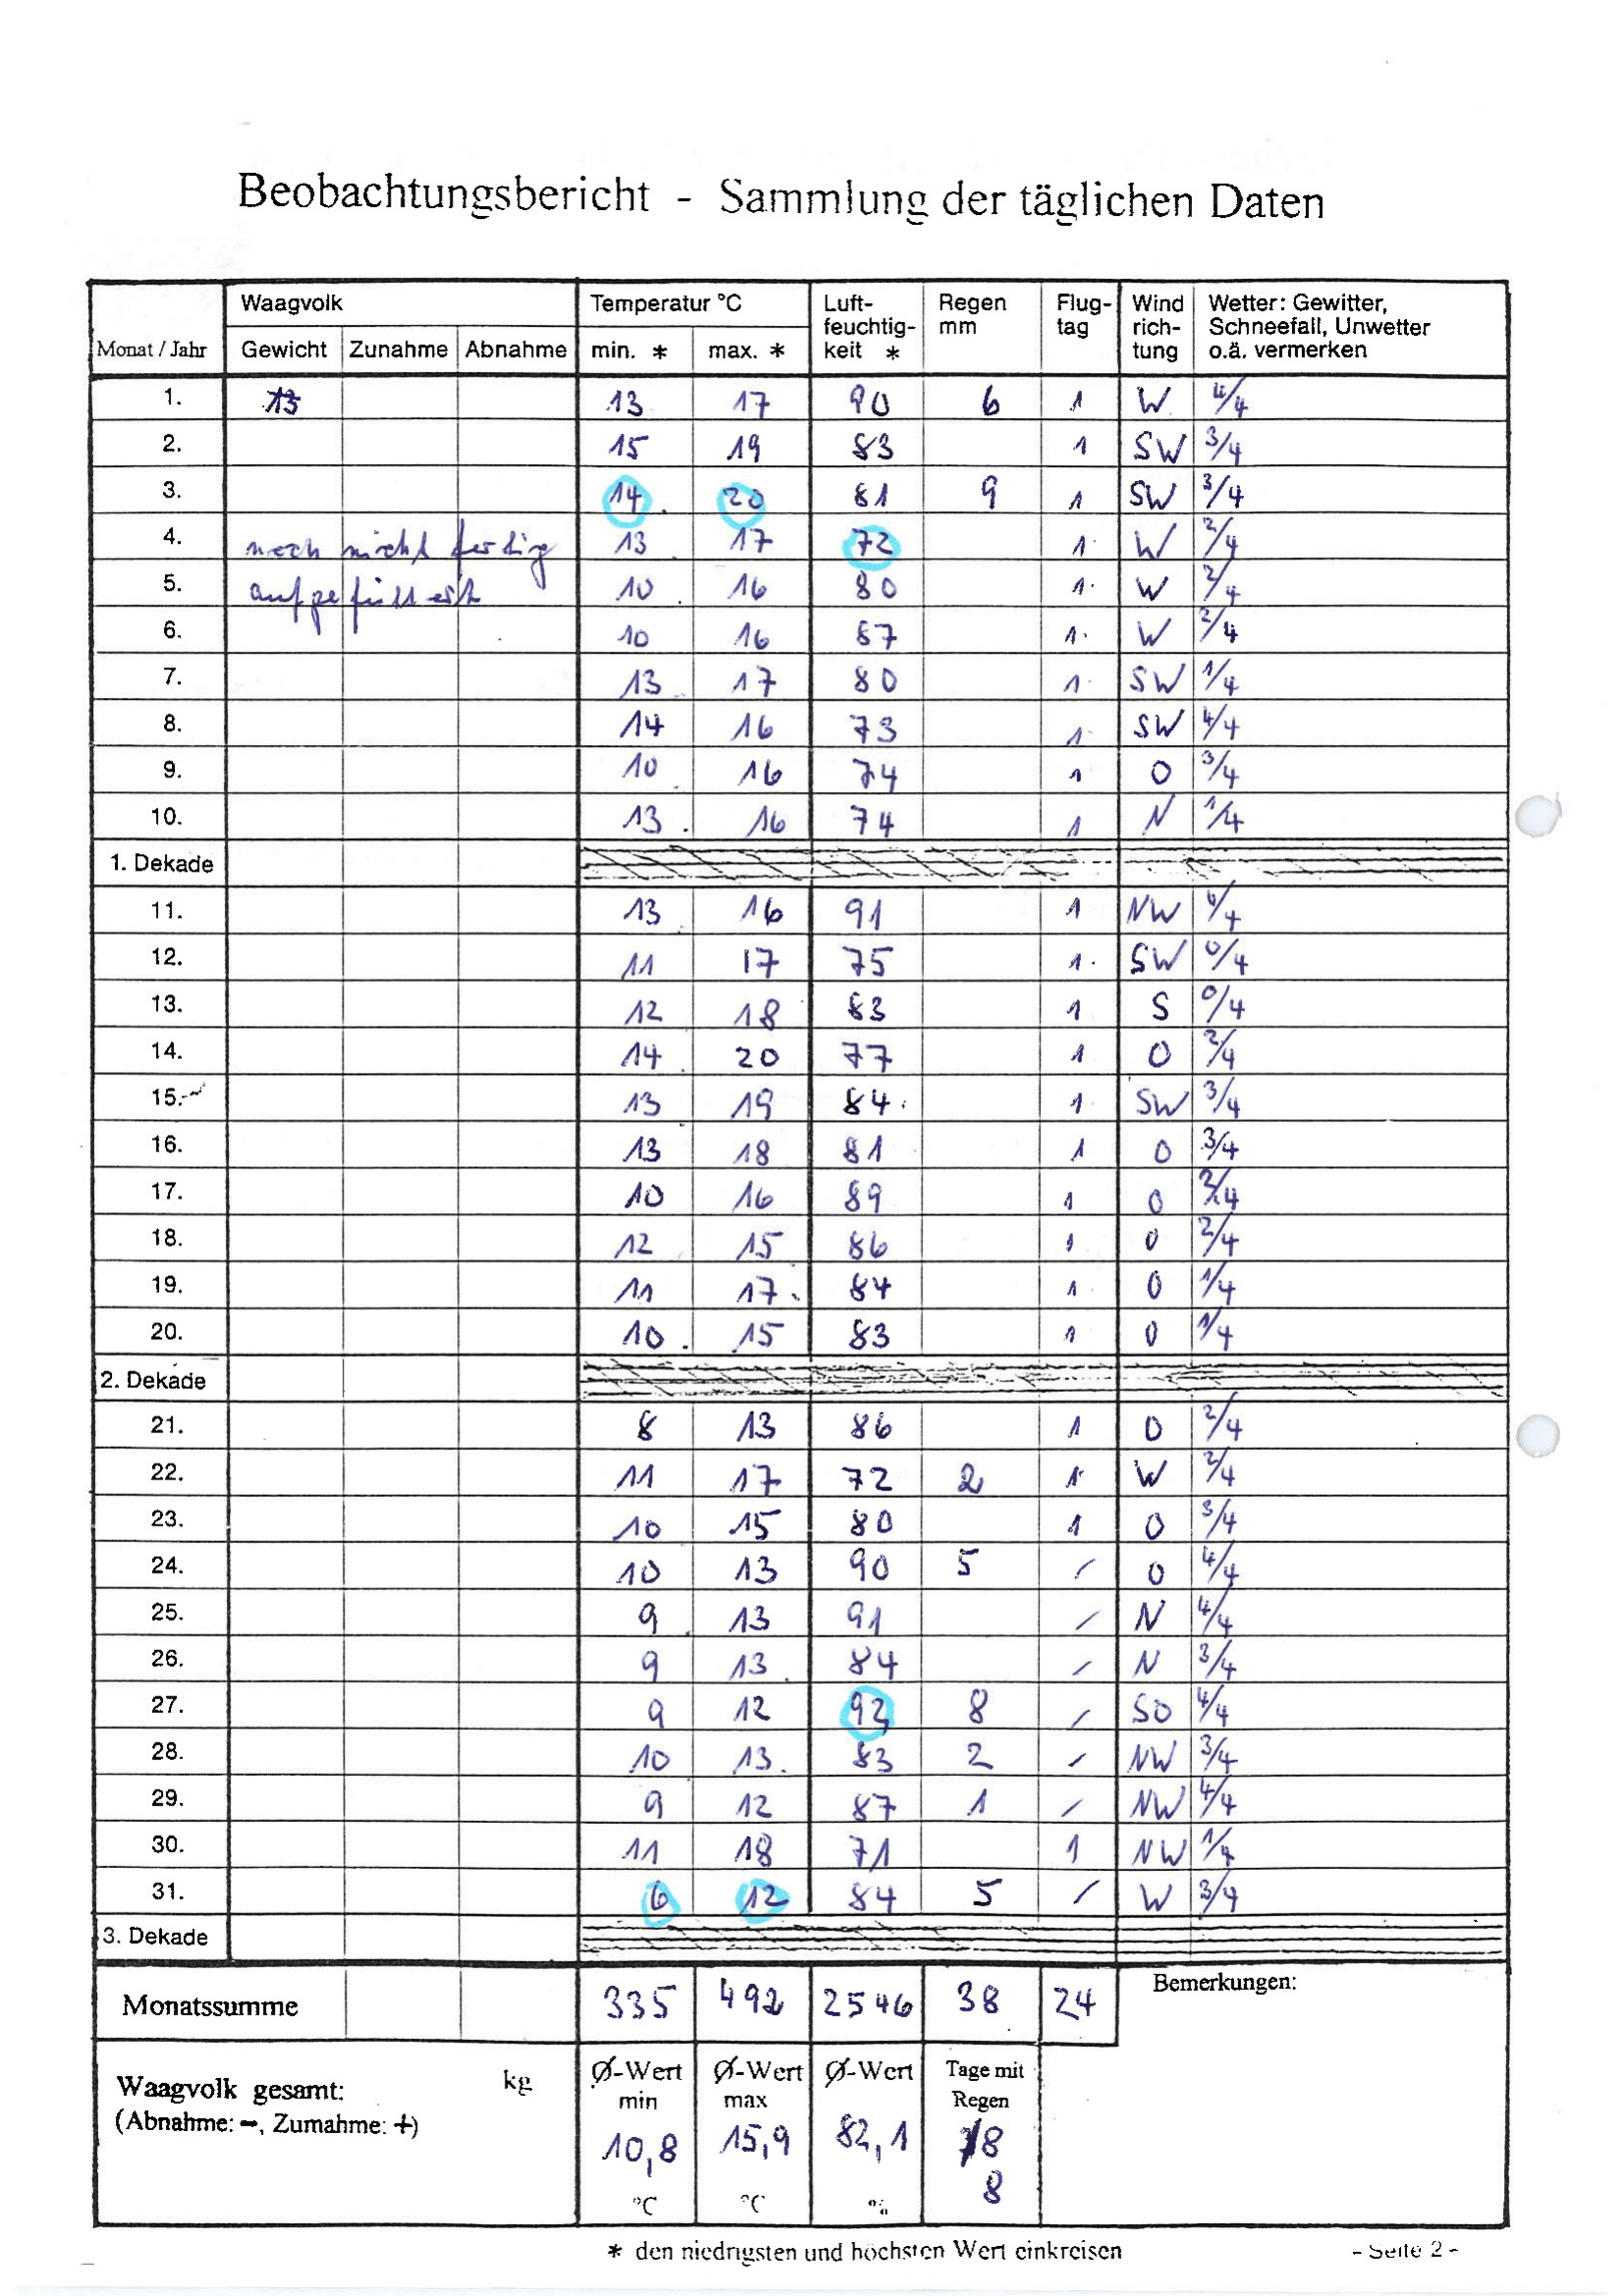 Beobachtungsbericht - Sammlung der täglichen Daten
Monat / Jahr Waagvolk Temperatur °C Luft- Regen Flug- Wind Wetter: Gewitter,
feuchtig- mm tag rich- Schneefall, Unwetter
Gewicht Zunahme Abnahme min. * max. * keit * tung o.ä. vermerken
1. 13 17 90 6 1 W 4/4
2. 15 19 83 1 SW 3/4
3. 14 20 81 9 1 SW 3/4
4. noch nicht fertig 13 17 72 1 W 2/4
5. aufgefüllert 10 16 80 1 W 2/4
6. 10 16 87 1 W 2/4
7. 13 17 80 1 SW 1/4
8. 14 16 73 1 SW 4/4
9. 10 16 74 1 O 3/4
10. 13 16 74 1 N 1/4
1. Dekade
11. 13 16 91 1 NW /4
12. 11 17 75 1 SW 0/4
13. 12 18 83 1 S 0/4
14. 14 20 77 1 O 2/4
15. 13 19 84 1 SW 3/4
16. 13 18 81 1 O 3/4
17. 10 16 89 1 O 2/4
18. 12 15 86 1 O 2/4
19. 11 17 84 1 O 1/4
20. 10 15 83 1 O 1/4
2. Dekade
21. 8 13 86 1 O 2/4
22. 11 17 72 2 1 W 2/4
23. 10 15 80 1 O 3/4
24. 10 13 90 5 / O 4/4
25. 9 13 91 / N 4/4
26. 9 13 84 / N 3/4
27. 9 12 92 8 / SO 4/4
28. 10 13 83 2 / NW 3/4
29. 9 12 87 1 / NW 4/4
30. 11 18 71 1 NW 1/4
31. 6 12 84 5 / W 3/4
3. Dekade
Monatssumme 335 492 2546 38 24 Bemerkungen:
Waagvolk gesamt: kg Ø-Wert Ø-Wert Ø-Wert Tage mit
(Abnahme: -, Zumahme: +) min max Regen
10,8 15,9 82,1 8
8
°C °C %
* den niedrigsten und höchsten Wert einkreisen - Seite 2 -